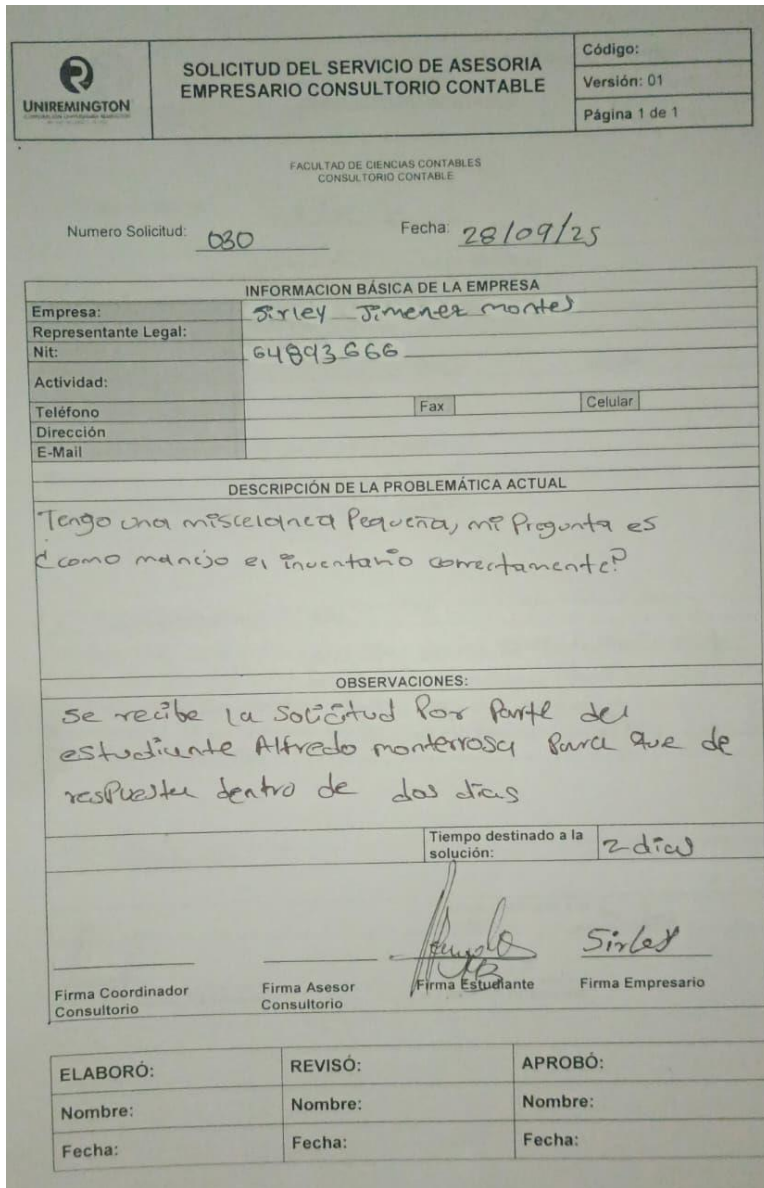 UNIREMINGTON
SOLICITUD DEL SERVICIO DE ASESORIA
EMPRESARIO CONSULTORIO CONTABLE
Código:
Versión: 01
Página 1 de 1
FACULTAD DE CIENCIAS CONTABLES
CONSULTORIO CONTABLE
Numero Solicitud: 030 Fecha: 28/09/25
INFORMACION BÁSICA DE LA EMPRESA
Empresa: Sirley Jimenez montes
Representante Legal:
Nit: 64893666
Actividad:
Teléfono Fax Celular
Dirección
E-Mail
DESCRIPCIÓN DE LA PROBLEMÁTICA ACTUAL
Tengo una miscelanea Pequeña, mi Pregunta es
¿como manejo el inventario correctamente?
OBSERVACIONES:
Se recibe la Solicitud Por Parte del
estudiante Alfredo monterrosa Para que de
resPuesta dentro de dos dias
Tiempo destinado a la
solución: 2 dias
Sirley
Firma Coordinador
Consultorio
Firma Asesor
Consultorio
Firma Estudiante
Firma Empresario
ELABORÓ: REVISÓ: APROBÓ:
Nombre: Nombre: Nombre:
Fecha: Fecha: Fecha: